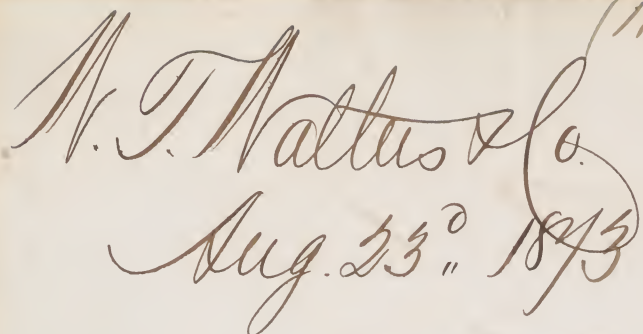 W. T. Walters & Co.
Aug. 23d 1873